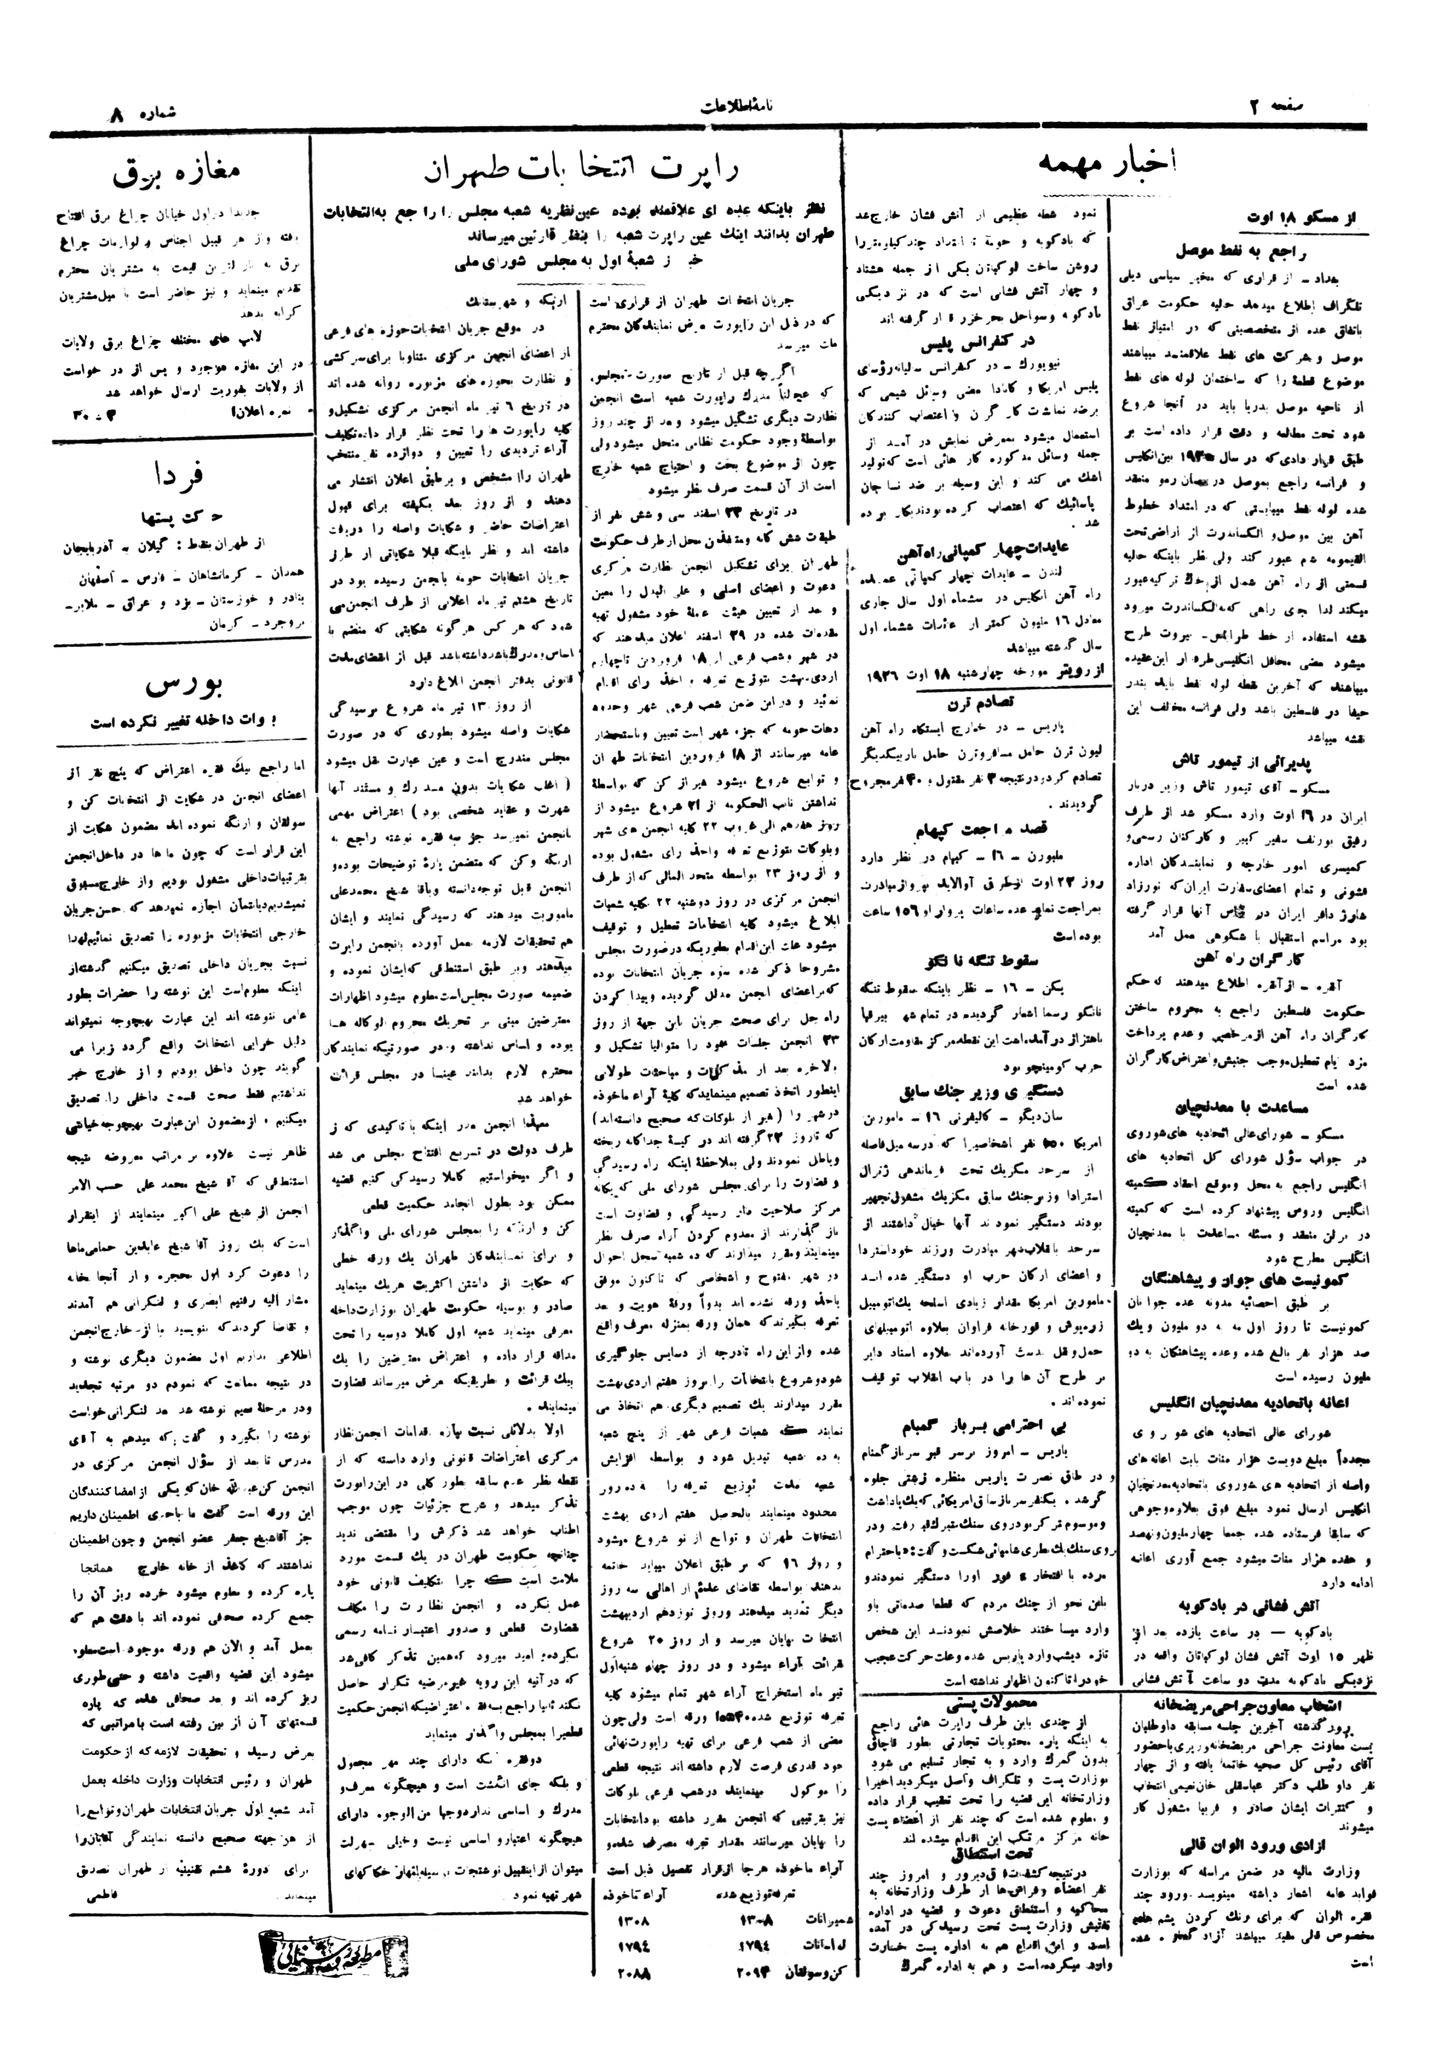 صفحه ۲
نامهٔ اطلاعات
شماره ۸
اخبار مهمه
از مسکو ۱۸ اوت
راجع به نفط موصل
بغداد ـ از قراری که مخبر سیاسی دیلی
تلگراف اطلاع میدهد حالیه حکومت عراق
باتفاق عده از متخصصینی که در امتیاز نفط
موصل و شرکت های نفط علاقمند میباشند
موضوع قطعهٔ را که ساختمان لوله های نفط
از ناحیه موصل بدریا باید در آنجا شروع
شود تحت مطالعه و دقت قرار داده است بر
طبق قرار دادی که در سال ۱۹۲۰ بین انگلیس
و فرانسه راجع بموصل در سان رمو منعقد
شده لوله نفط میبایستی که در امتداد خطوط
آهن بین موصل و الکساندرت از اراضی تحت
القیمومه شام عبور کند ولی نظر باینکه حالیه
قسمتی از راه آهن شمال از خاک ترکیه عبور
میکند لذا بجای راهی که بالکساندرت میرود
نقشه استفاده از خط طرابلس ـ بیروت طرح
میشود بعضی محافل انگلیسی طرفدار این عقیده
میباشند که آخرین نقطه لوله نفط باید بندر
حیفا در فلسطین باشد ولی فرانسه مخالف این
نقشه میباشد
پذیرائی از تیمور تاش
مسکو ـ آقای تیمور تاش وزیر دربار
ایران در ۱۶ اوت وارد مسکو شد از طرف
رفیق یورنف سفیر کبیر و کارکنان رسمی و
کمیسری امور خارجه و نمایندگان اداره
قشونی و تمام اعضای سفارت ایران که نورزاد
شارژ دافر ایران در رأس آنها قرار گرفته
بود مراسم استقبال با شکوهی بعمل آمد
کارگران راه آهن
آنقره ـ از آنقره اطلاع میدهند که حکم
حکومت فلسطین راجع به محروم ساختن
کارگران راه آهن از مرخصی و عدم پرداخت
مزد ایام تعطیل موجب جنبش و اعتراض کارگران
شده است
مساعدت با معدنچیان
مسکو ـ شورای عالی اتحادیه های شوروی
در جواب سؤال شورای کل اتحادیه های
انگلیس راجع به محل و موقع انعقاد کمیته
انگلیس و روس پیشنهاد کرده است که کمیته
در برلن منعقد و مسئله مساعدت با معدنچیان
انگلیس مطرح شود
کمونیست های جوان و پیشاهنگان
بر طبق احصائیه مدونه عده جوانان
کمونیست تا روز اول مه به دو ملیون و یک
صد هزار نفر بالغ شده وعده پیشاهنگان به دو
ملیون رسیده است
اعانه باتحادیه معدنچیان انگلیس
شورای عالی اتحادیه های شوروی
مجدداً مبلغ دویست هزار منات بابت اعانه های
واصله از اتحادیه های شوروی باتحادیه معدنچیان
انگلیس ارسال نمود مبلغ فوق بعلاوه وجوهی
که سابقا فرستاده شده جمعا چهار ملیون و نهصد
و هفده هزار منات میشود جمع آوری اعانه
ادامه دارد
آتش فشانی در بادکوبه
بادکوبه ـ در ساعت یازده بعد از
ظهر ۱۵ اوت آتش فشان لوکباتان واقعه در
نزدیکی بادکوبه مدت دو ساعت آتش فشانی
انتخاب معاون جراحی مریضخانه
پرروز گذشته آخرین جلسه مسابقه داوطلبان
پست معاونت جراحی مریضخانه وزیری با حضور
آقای رئیس کل صحیه خاتمه یافته و از چهار
نفر داوطلب دکتر عباسقلی خان نعیمی انتخاب
و کنترات ایشان صادر و قریبا مشغول کار
میشوند
ازادی ورود الوان قالی
وزارت مالیه در ضمن مراسله که بوزارت
فواید عامه اشعار داشته مینویسد ورود چند
فقره الوان که برای رنگ کردن پشم های
مخصوص قالی مفید میباشد آزاد شده
است
نمود شعله عظیمی از آتش فشان خارج شد
که بادکوبه و حومهٔ تا امتداد چند کیلومتر را
روشن ساخت لوکباتان یکی از جمله هشتاد
و چهار آتش فشانی است که در نزدیکی
بادکوبه و سواحل بحر خزر قرار گرفته اند
در کنفرانس پلیس
نیویورک ـ در کنفرانس سالیانه رؤسای
پلیس امریکا و کانادا بعضی وسائل شیمی که
برضد نمایشات کارگران و اعتصاب کنندگان
استعمال میشود بمعرض نمایش در آمد از
جمله وسائل مذکوره گازهائی است که تولید
اشک می کند و این وسیله بر ضد نساجان
پاسائیک که اعتصاب کرده بودند بکار برده
شد .
عایدات چهار کمپانی راه آهن
لندن ـ عایدات چهار کمپانی عمده
راه آهن انگلیس در ششماه اول سال جاری
معادل ۱۶ ملیون کمتر از عایدات ششماه اول
سال گذشته میباشد
از رویتر مورخه چهارشنبه ۱۸ اوت ۱۹۲۶
تصادم ترن
پاریس ـ در خارج ایستگاه راه آهن
لیون ترن حامل مسافر و ترن حامل بار بیکدیگر
تصادم کردند در نتیجه ۳ نفر مقتول و ۴۰ نفر مجروح
گردیدند .
قصد مراجعت کبهام
ملبورن ـ ۱۶ ـ کبهام در نظر دارد
روز ۲۳ اوت از طریق آدلاید بپرواز مبادرت
بمراجعت نماید عده ساعات پرواز او ۱۵۶ ساعت
بوده است
سقوط تنگه نانکو
پکن ـ ۱۶ ـ نظر باینکه سقوط تنگه
نانکو رسما اشعار گردیده در تمام شهر بیرقها
باهتزاز در آمده است این نقطه مرکز مقاومت ارکان
حرب کومینچو بود
دستگیری وزیر جنک سابق
سان دیگو ـ کالیفرنی ۱۶ ـ مامورین
امریکا ۱۵۰ نفر اشخاصیرا که در سه میل فاصله
از سرحد مکزیک تحت فرماندهی ژنرال
استرادا وزیر جنک سابق مکزیک مشغول تجهیز
بودند دستگیر نمودند آنها خیال داشتند از
سرحد بانقلاب شهر مبادرت ورزند خود استرادا
و اعضای ارکان حرب او دستگیر شده اند
مامورین امریکا مقدار زیادی اسلحه یک اتومبیل
زره پوش و قورخانه فراوان بعلاوه اتومبیلهای
حمل و نقل بدست آورده اند علاوه اسناد دایر
بر طرح آن ها را در باب انقلاب توقیف
نموده اند .
بی احترامی بسرباز گمنام
پاریس ـ امروز برسر قبر سرباز گمنام
در طاق نصرت پاریس منظره زشتی جلوه
گر شد . یکنفر سرباز سابق امریکائی که یک یادداشت
و موسوم بترکرمودروی سنک متبرک قبر رفت و در
روی سنک یک بطری شامپانی شکست و گفت: «باحترام
مرده با افتخار» فوراً اورا دستگیر نمودند و
باین نحو از چنک مردم که قطعا صدماتی باو
وارد میساختند خلاصش نمودند این شخص
تازه دیشب وارد پاریس شده و علت حرکت عجیب
خود را تا کنون اظهار نداشته است
محمولات پستی
از چندی باین طرف راپرت هائی راجع
به اینکه پاره محتویات تجارتی بطور قاچاق
بدون گمرک وارد و به تجار تسلیم می شود
بوزارت پست و تلگراف واصل میگردید اخیرا
وزارتخانه این قضیه را تحت تعقیب قرار داده
و معلوم شده است که چند نفر از اعضاء پست
خانه مرکز مرتکب این اقدام میشده اند
تحت استنطاق
در نتیجه کشفیات فوق دیروز و امروز چند
نفر اعضاء و فراش ها از طرف وزارتخانه به
محاکمه و استنطاق دعوت و قضیه در اداره
تفتیش وزارت پست تحت رسیدگی در آمده
است و این اقدام هم به اداره پست خسارت
وارد میکرده است و هم به اداره گمرک
راپرت انتخابات طهران
نظر باینکه عده ای علاقمند بوده عین نظریه شعبه مجلس را راجع به انتخابات
طهران بدانند اینک عین راپرت شعبه را بنظر قارئین میرساند
خبر از شعبهٔ اول به مجلس شورای ملی
جریان انتخابات طهران از قراری است
که در ذیل این راپورت بعرض نمایندگان محترم
میرسد
اگرچه قبل از تاریخ صورت مجلس
که عجالتاً مدرک راپورت شعبه است انجمن
نظارت دیگری تشکیل میشود و بعد از چند روز
بواسطهٔ وجود حکومت نظامی منحل میشود ولی
چون از موضوع بحث و احتیاج شعبه خارج
است از آن قسمت صرف نظر میشود
در تاریخ ۲۳ اسفند سی و شش نفر از
طبقات شش گانه و معتمدین محل از طرف حکومت
طهران برای تشکیل انجمن نظارت مرکزی
دعوت و اعضای اصلی و علی البدل را معین
و بعد از تعیین هیئت عملهٔ خود مشغول تهیه
مقدمات شده در ۲۹ اسفند اعلان میدهند که
در شهر و شعب فرعی از ۱۸ فروردین تا چهارم
اردی بهشت بتوزیع تعرفه و اخذ رای اقدام
نمایند و در این ضمن شعب فرعی شهر وحدود
دهات حومه که جزء شهر است تعیین و باستحضار
عامه میرسانند از ۱۸ فروردین انتخابات طهران
و توابع شروع میشود غیر از کن که بواسطهٔ
نداشتن نایب الحکومه از ۲۱ شروع میشود از
روز هفدهم الی غروب ۲۲ کلیه انجمن های شهر
و بلوکات بتوزیع تعرفه و اخذ رای مشغول بوده
و از روز ۲۳ بواسطه متحد المالی که از طرف
انجمن مرکزی در روز دوشنبه ۲۲ بکلیه شعبات
ابلاغ میشود کلیه انتخابات تعطیل و توقیف
میشود علت این اقدام بطوریکه در صورت مجلس
مشروحا ذکر شده سوء جریان انتخابات بوده
که بر اعضای انجمن مدلل گردیده و پیدا کردن
راه حل برای صحت جریان باین جهة از روز
۲۳ انجمن جلسات خود را متوالیا تشکیل و
بالاخره بعد از مذاکرات و مباحثات طولانی
اینطور اتخاذ تصمیم مینماید که کلیهٔ آراء ماخوذه
در شهر را (غیر از بلوکات که صحیح دانسته اند)
که تا روز ۲۳ گرفته اند در کیسهٔ جداگانه ریخته
و باطل نمودند ولی بملاحظهٔ اینکه راه رسیدگی
و قضاوت را برای مجلس شورای ملی که یگانه
مرکز صلاحیت دار رسیدگی و قضاوت است
باز گذارند از معدوم کردن آراء صرف نظر
مینمایند و مقرر میدارند که ده شعبه سجل احوال
در شهر مفتوح و اشخاصی که تاکنون موفق
باخذ ورقه نشده اند بدواً ورقهٔ هویت و بعد
تعرفه بگیرند که همان ورقه بمنزله معرف واقع
شده و از این راه تا درجه از دسایس جلوگیری
شود و شروع بانتخابات را بروز هفتم اردی بهشت
مقرر میدارند یک تصمیم دیگری هم اتخاذ می
نمایند که شعبات فرعی شهر از پنج شعبه
به ده شعبه تبدیل شود و بواسطه افزایش
شعبه مدت توزیع تعرفه را به ده روز
محدود مینمایند بالحاصل هفتم اردی بهشت
انتخابات طهران و توابع از نو شروع میشود
و روز ۱۶ که بر طبق اعلان میباید خاتمه
بدهند بواسطه تقاضای عده‌ئی از اهالی سه روز
دیگر تمدید میدهند و روز نوزدهم اردیبهشت
انتخابات بپایان میرسد و از روز ۲۰ شروع
قرائت آراء میشود و در روز چهارشنبه اول
تیر ماه استخراج آراء شهر تمام میشود کلیه
تعرفه توزیع شده ۱۵۵۴۰ ورقه است ولی چون
بعضی از شعب فرعی برای تهیه راپورت نهائی
خود قدری فرصت لازم داشته اند نتیجه قطعی
را موکول مینمایند در شعب فرعی بلوکات
نیز بترتیبی که انجمن مقرر داشته بود انتخابات
را بپایان میرسانند مقدار تعرفه مصرف شده و
آراء ماخوذه هرجا از قرار تفصیل ذیل است
تعرفه توزیع شده آراء ماخوذه
شمیرانات ۱۳۰۸ ۱۳۰۸
لواسانات ۱۷۹۴ ۱۷۹۴
کن و سولقان ۲۰۹۴ ۲۰۸۸
ارنگه و شهرستانک
در موقع جریان انتخابات حوزه های فرعی
از اعضای انجمن مرکزی متناوبا برای سرکشی
و نظارت بحوزه های مزبوره روانه شده اند
در تاریخ ۶ تیر ماه انجمن مرکزی تشکیل و
کلیه راپورت ها را تحت نظر قرار داده تکلیف
آراء تردیدی را تعیین و دوازده نفر منتخب
طهران را مشخص و بر طبق اعلان انتشار می
دهند و از روز بعد بیکهفته برای قبول
اعتراضات حاضر و شکایات واصله را دریافت
داشته اند و نظر باینکه قبلا شکایاتی از طرز
جریان انتخابات حومه بانجمن رسیده بود در
تاریخ هشتم تیر ماه اعلانی از طرف انجمن می
شود که هر کس هرگونه شکایتی که منضم با
اساس و مدرک باشد داشته باشد قبل از انقضای مدت
قانونی بدفتر انجمن ابلاغ دارد
از روز ۱۳ تیر ماه شروع برسیدگی
شکایات واصله میشود بطوری که در صورت
مجلس مندرج است و عین عبارت نقل میشود
(اغلب شکایات بدون مدرک و مستند آنها
شهرت و عقاید شخصی بود) اعتراض مهمی
بانجمن نمیرسد جز سه فقره نوشته راجع به
ارنگه و کن که متضمن پارهٔ توضیحات بوده و
انجمن قابل توجه دانسته و بآقا شیخ محمد علی
ماموریت میدهند که رسیدگی نمایند و ایشان
هم تحقیقات لازمه بعمل آورده بانجمن راپرت
میدهند و بر طبق استنطاقی که ایشان نموده و
ضمیمه صورت مجلس است معلوم میشود اظهارات
معترضین مبنی بر تحریک محروم الوکاله ها
بوده و اساس نداشته و در صورتیکه نمایندگان
محترم لازم بدانند عینا در مجلس قرائت
خواهد شد
معهذا انجمن نظر اینکه با تاکیدی که از
طرف دولت در تسریع افتتاح مجلس می شد
و اگر میخواستیم کاملا رسیدگی کنیم قضیه
ممکن بود بطول انجامد حکمیت قطعی
کن و ارنگه را بمجلس شورای ملی واگذار
و برای نمایندگان طهران یک ورقه خطی
که حکایت از داشتن اکثریت هریک مینماید
صادر و بوسیله حکومت طهران بوزارت داخله
معرفی مینماید شعبه اول کاملا دوسیه را تحت
مداقه قرار داده و اعتراض معترضین را یک
بیک قرائت و بطریقیکه بعرض میرساند قضاوت
مینماید .
اولا بدلائلی نسبت بپاره اقدامات انجمن نظار
مرکزی اعتراضات قانونی وارد دانسته که از
نقطه نظر عدم سابقه بطور کلی در این راپورت
تذکر میدهد و شرح جزئیات چون موجب
اطناب خواهد شد ذکرش را مقتضی ندید
چنانچه حکومت طهران در یک قسمت مورد
ملامت است که چرا بتکلیف قانونی خود
عمل نکرده و انجمن نظارت را مکلف
بقضاوت قطعی و صدور اعتبار نامه رسمی
نکرده و امید میرود که همین تذکر کافی شد
که در آتیه این رویه غیر مرضیه تکرار حاصل
نکند ثانیا راجع بسه فقره اعتراضیکه انجمن حکمیت
قطعیرا بمجلس واگذار مینماید
دو فقره که دارای چند مهر مجعول
و بلکه جای انگشت است و هیچگونه معرف و
مدرک و اساسی ندارد و بوجها من الوجوه دارای
هیچگونه اعتبار و اساسی نیست و خیلی بسهولت
میتوان از اینقبیل نوشتجات بوسیله مهرهای حکاکهای
شهر تهیه نمود .
مغازه برق
جدیدا در اول خیابان چراغ برق افتتاح
یافته و از هر قبیل اجناس و لوازمات چراغ
برق به نازلترین قیمت به مشتریان محترم
تقدیم مینماید و نیز حاضر است با میل مشتریان
کرایه بدهد
لامپ های مختلفه چراغ برق ولایات
در این مغازه موجود و پس از در خواست
از ولایات بفوریت ارسال خواهد شد
نمره اعلان ۱ ۴ ـ ۳۰
فردا
حرکت پستها
از طهران بنقاط : گیلان ـ آذربایجان
همدان ـ کرمانشاهان ـ فارس ـ اصفهان
بنادر و خوزستان ـ یزد و عراق ـ ملایر ـ
بروجرد ـ کرمان
بورس
بروات داخله تغییر نکرده است
اما راجع بیک فقره اعتراض که پنج نفر از
اعضای انجمن در شکایت از انتخابات کن و
سولقان و ارنگه نموده اند مضمون شکایت از
این قرار است که چون ماها در داخل انجمن
بترتیبات داخلی مشغول بودیم و از خارج مسبوق
نمیشدیم دیانتمان اجازه نمیدهد که حسن جریان
خارجی انتخابات مزبوره را تصدیق نمائیم لهذا
نسبت بجریان داخلی تصدیق میکنیم گذشته از
اینکه معلوم است این نوشته را حضرات بطور
عامی ننوشته اند این عبارت بهیچوجه نمیتواند
دلیل خرابی انتخابات واقع گردد زیرا می
گویند چون داخل بودیم و از خارج خبر
نداشتیم فقط صحت قسمت داخلی را تصدیق
میکنیم و از مضمون این عبارت بهیچوجه خیانتی
ظاهر نیست علاوه بر مراتب معروضه نتیجه
استنطاقی که آقا شیخ محمد علی حسب الامر
انجمن از شیخ علی اکبر مینمایند از اینقرار
است که یک روز آقا شیخ عابدین حمامی ماها
را دعوت کرد اول حجره و از آنجا خانه
مشار الیه رفتیم ابصری و لنکرانی هم آمدند
و تقاضا کردند که بنویسید ما از خارج انجمن
اطلاعی نداریم اول مضمون دیگری نوشته و
در نتیجه ممانعت که نمودم دو مرتبه تجدید
و در مرحلهٔ سیم نوشته شد بعد لنکرانی خواست
نوشته را بگیرد و گفت که میدهم به آقای
مدرس تا بعد از سؤال انجمن مرکزی در
انجمن کن عبدالله خان که یکی از امضا کنندگان
این ورقه است گفت ما باحدی اطمینان داریم
جز آقا شیخ جعفر عضو انجمن و چون اطمینان
نداشتند که کاغذ از خانه خارج همانجا
پاره کرده و معلوم میشود خرده ریز آن را
جمع کرده صحافی نموده اند با دقت هم که
بعمل آمد و الان هم ورقه موجود است معلوم
میشود این قضیه واقعیت داشته و حتی طوری
ریز کرده اند و بعد صحافی شده که پاره
قسمتهای آن از بین رفته است با مراتبی که
بعرض رسید و تحقیقات لازمه که از حکومت
طهران و رئیس انتخابات وزارت داخله بعمل
آمد شعبه اول جریان انتخابات طهران و توابع را
از هر جهته صحیح دانسته نمایندگی آقایان را
برای دورهٔ ششم تقنینیه از طهران تصدیق
مینماید . فاطمی
مطبعه روشنائی